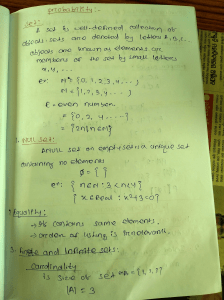 Probability:-
Set:-
A set is well-defined collection of
objects. sets are denoted by letters A, B, C.
objects are known as elements or
members of the set by small letters
x, y, ...
ex: N* = {0, 1, 2, 3, 4, ...}
N = {1, 2, 3, 4, ...}
E = even number
= {0, 2, 4, ...}
= {2n | n ∈ N}
Null set:
A null set or empty set is a unique set
containing no elements
∅ = { }
ex: { n ∈ N : 3 < n < 4 }
{ x ∈ Real : x²+3=0 }
Equality:
→ It's contains same elements.
→ order of listing is irrelevant.
3. finite and infinite sets:
Cardinality
is size of set
|A| = 3